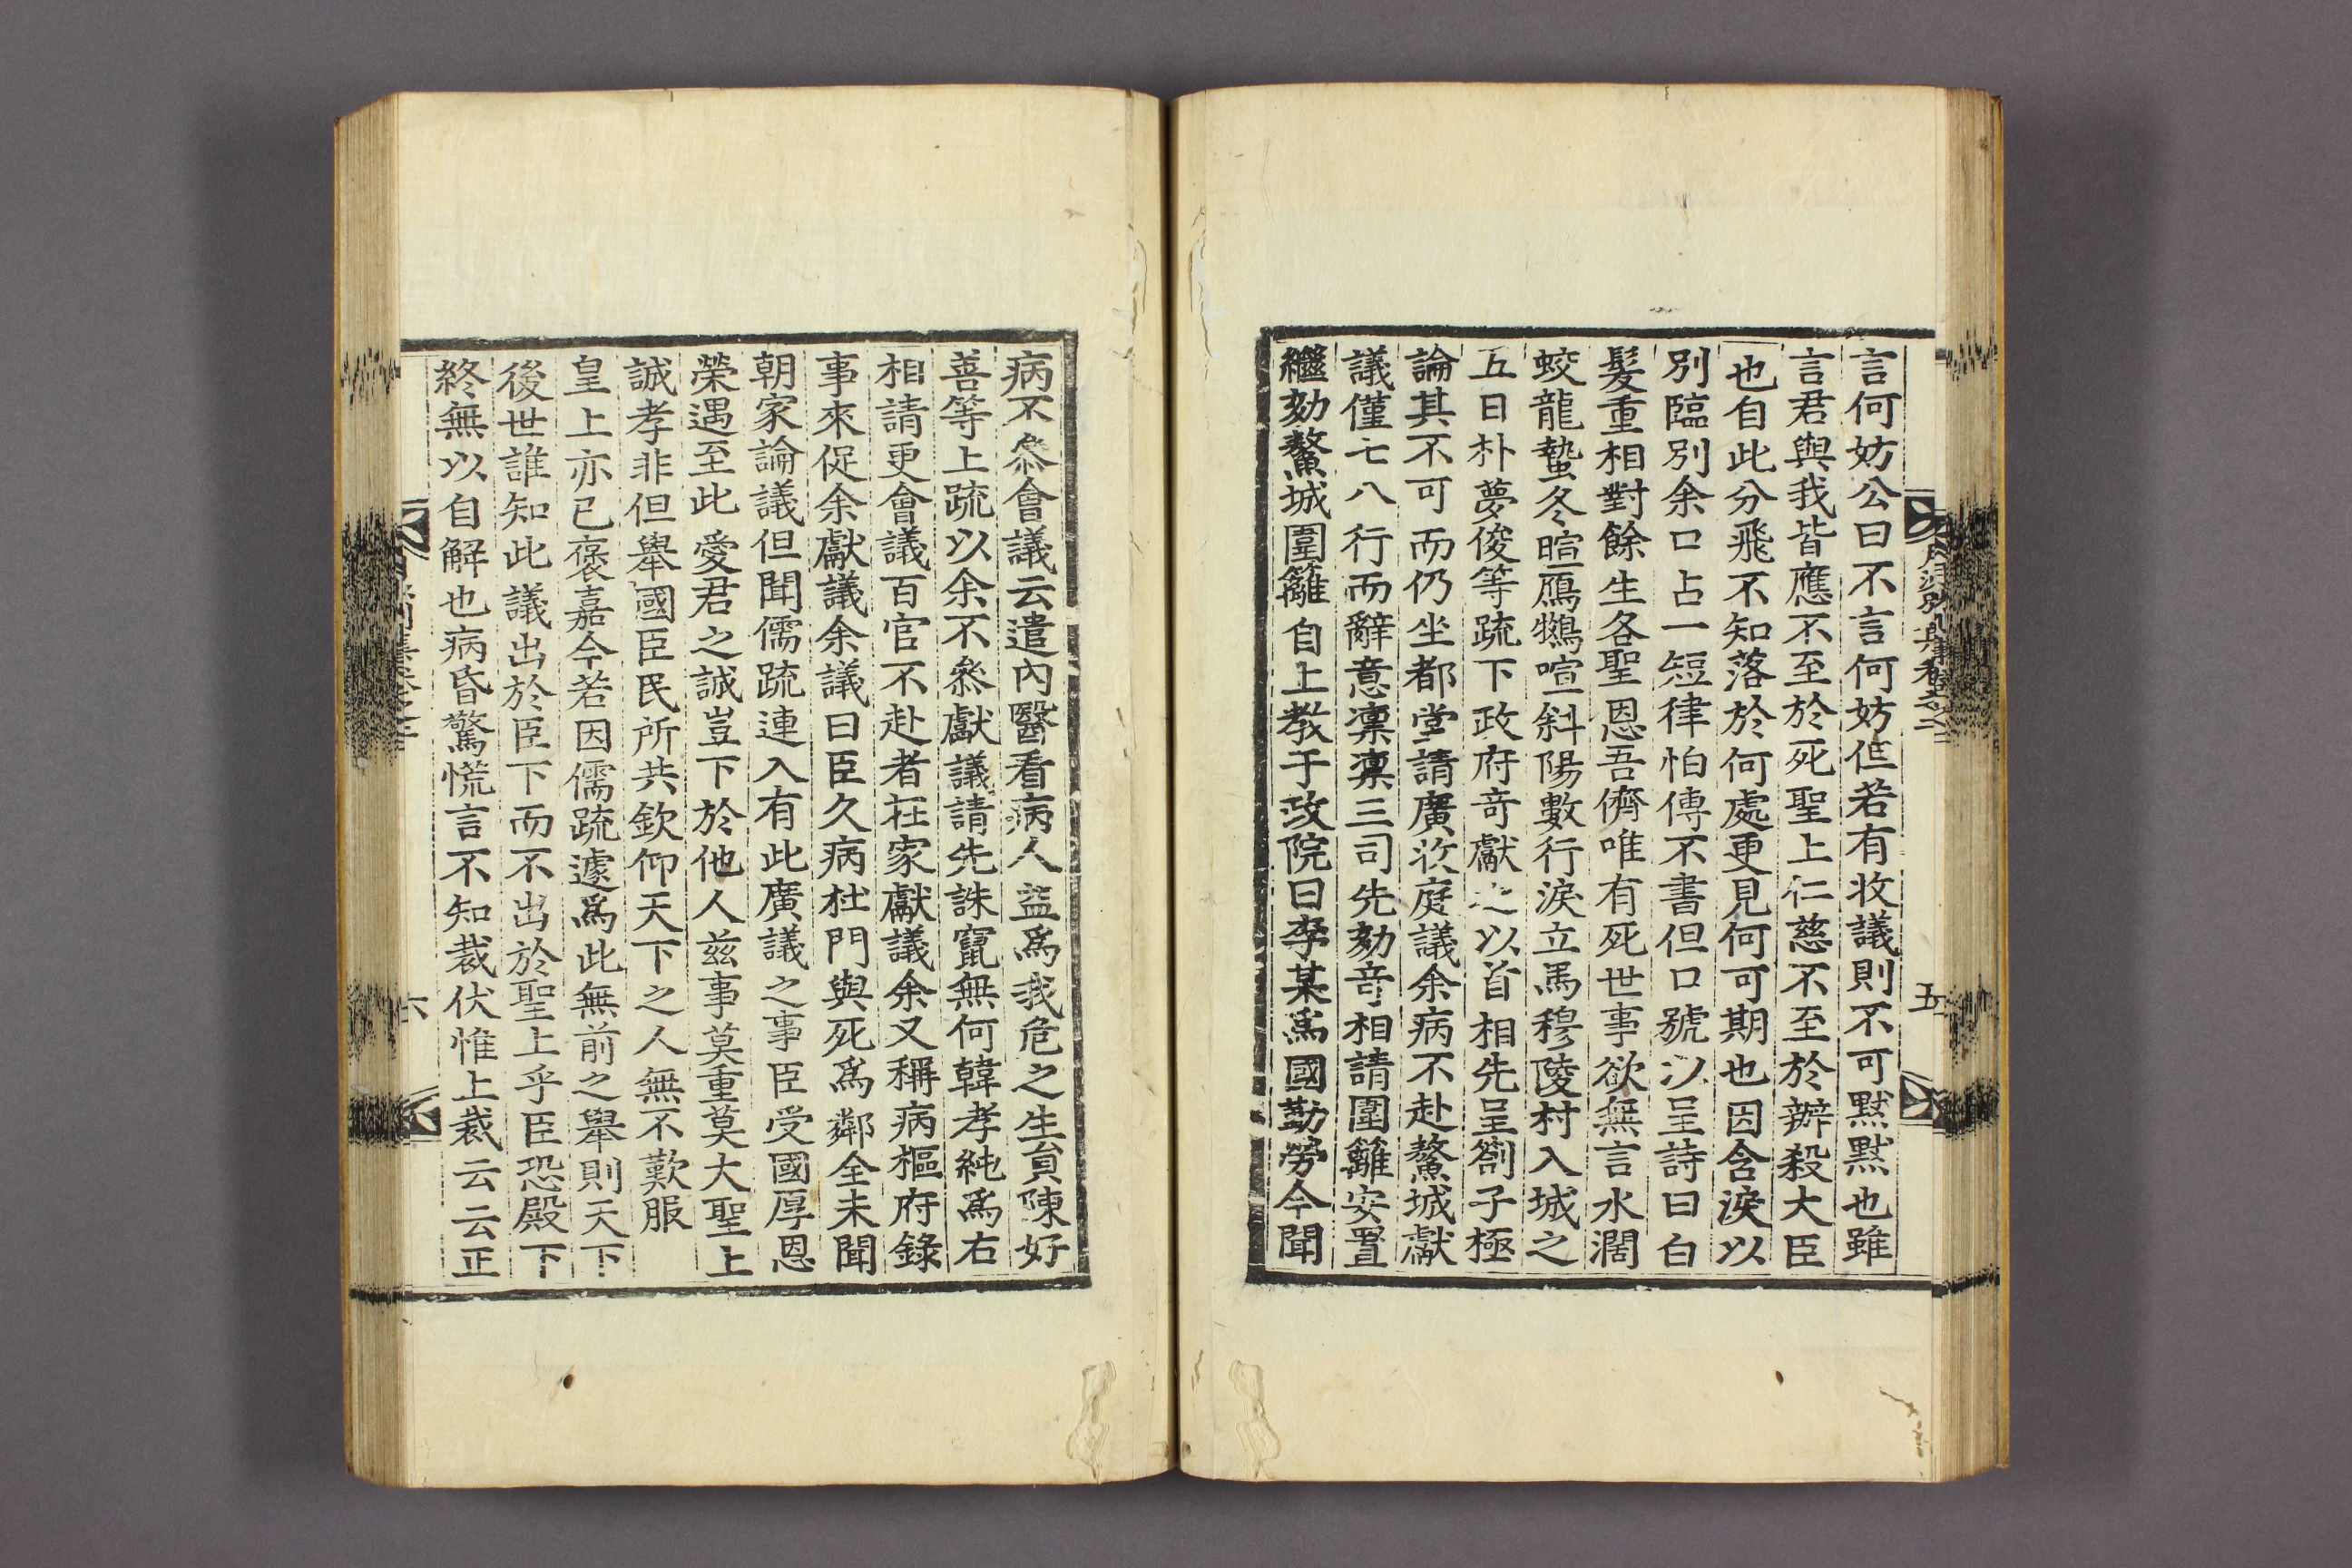 言何妨公曰不言何妨但若有收議則不可默默也雖
言君與我皆應不至於死聖上仁慈不至於辦殺大臣
也自此分飛不知落於何處更見何可期也因含淚以
別臨別余口占一短律怕傳不書但口號以呈詩曰白
髮重相對餘生各聖恩吾儕唯有死世事欲無言水濶
蛟龍蟄冬暄鴈鶩喧斜陽數行淚立馬穆陵村入城之
五日朴夢俊等疏下政府奇獻之以首相先呈箚子極
論其不可而仍坐都堂請廣收庭議余病不赴鰲城獻
議僅七八行而辭意凛凛三司先劾奇相請圍籬安置
繼劾鰲城圍籬自上敎于政院曰李某爲國勤勞今聞
病不叅會議云遣內醫看病人益爲我危之生員陳好
善等上疏以余不叅獻議請先誅竄無何韓孝純爲右
相請更會議百官不赴者在家獻議余又稱病樞府錄
事來促余獻議余議曰臣久病杜門與死爲鄰全未聞
朝家論議但聞儒疏連入有此廣議之事臣受國厚恩
榮遇至此愛君之誠豈下於他人茲事莫重莫大聖上
誠孝非但舉國臣民所共欽仰天下之人無不歎服
皇上亦已褒嘉今若因儒疏遽爲此無前之舉則天下
後世誰知此議出於臣下而不出於聖上乎臣恐殿下
終無以自解也病昏驚慌言不知裁伏惟上裁云云正
月沙別集卷之一
五
六